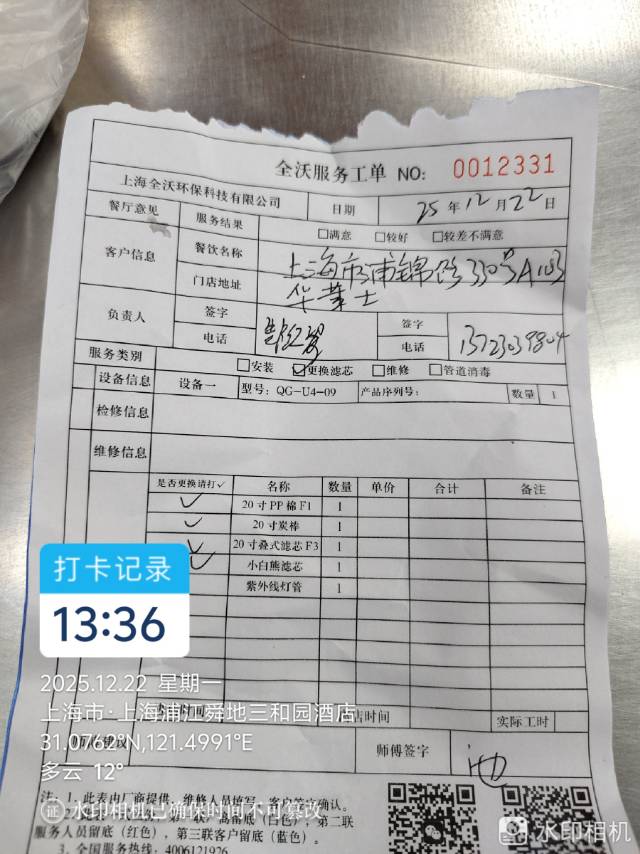 全沃服务工单 NO: 0012331
上海全沃环保科技有限公司 日期 25年12月22日
餐厅意见 服务结果 □满意 □较好 □较差不满意
客户信息 餐饮名称 上海市浦锦路330号A103
门店地址 华莱士
负责人 签字 签字
电话 电话 13723039804
服务类别 □安装 ☑更换滤芯 □维修 □管道消毒
设备信息 设备一 型号: QG-U4-09 产品序列号: 数量 1
检修信息
维修信息
是否更换请打✓ 名称 数量 单价 合计 备注
✓ 20寸PP棉F1 1
✓ 20寸炭棒 1
✓ 20寸叠式滤芯F3 1
✓ 小白熊滤芯 1
紫外线灯管 1
打卡记录
13:36
2025.12.22 星期一
上海市·上海浦江舜地三和园酒店
店时间 实际工时
31.0762°N,121.4991°E
师傅签字 池
多云 12°
注: 1. 此表由厂商提供, 维修人员填写, 客户签字确认。
证 水印相机已确保时间不可篡改
留底(白色); 第二联
服务人员留底(红色), 第三联客户留底(蓝色)。
3. 全国服务热线: 4006121926
水印相机